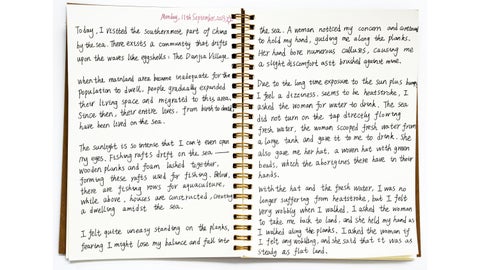 Monday, 11th September, 2023
Today, I visited the southernmost part of China
by the sea. There exists a community that drifts
upon the waves like eggshells: The Danjia Village.
When the mainland area became inadequate for the
population to dwell, people gradually expanded
their living space and migrated to this area.
Since then, their entire lives, from birth to death,
have been lived on the sea.
The sunlight is so intense that I can't even open
my eyes. Fishing rafts drift on the sea —
wooden planks and foam lashed together,
forming these rafts used for fishing. Below,
there are fishing rows for aquaculture,
while above, houses are constructed, creating
a dwelling amidst the sea.
I felt quite uneasy standing on the planks,
fearing I might lose my balance and fall into
the sea. A woman noticed my concern and
to hold my hand, guiding me along the planks.
Her hand bore numerous calluses, causing me
a slight discomfort as it brushed against mine.
Due to the long time exposure to the sun plus
I feel a dizziness. seems to be heatstroke, I
asked the woman for water to drink. The sea
did not turn on the tap directly flowing
fresh water, the woman scooped fresh water from
a large tank and gave it to me to drink. She
also gave me her hat, a woven hat with green
beads, which the aborigines there have in their
hands.
With the hat and the fresh water, I was no
longer suffering from heatstroke, but I felt
very wobbly when I walked. I asked the woman
to take me back to land, and she held my hand as
I walked along the planks. I asked the woman if
I felt any wobbling, and she said that it was as
steady as flat land.